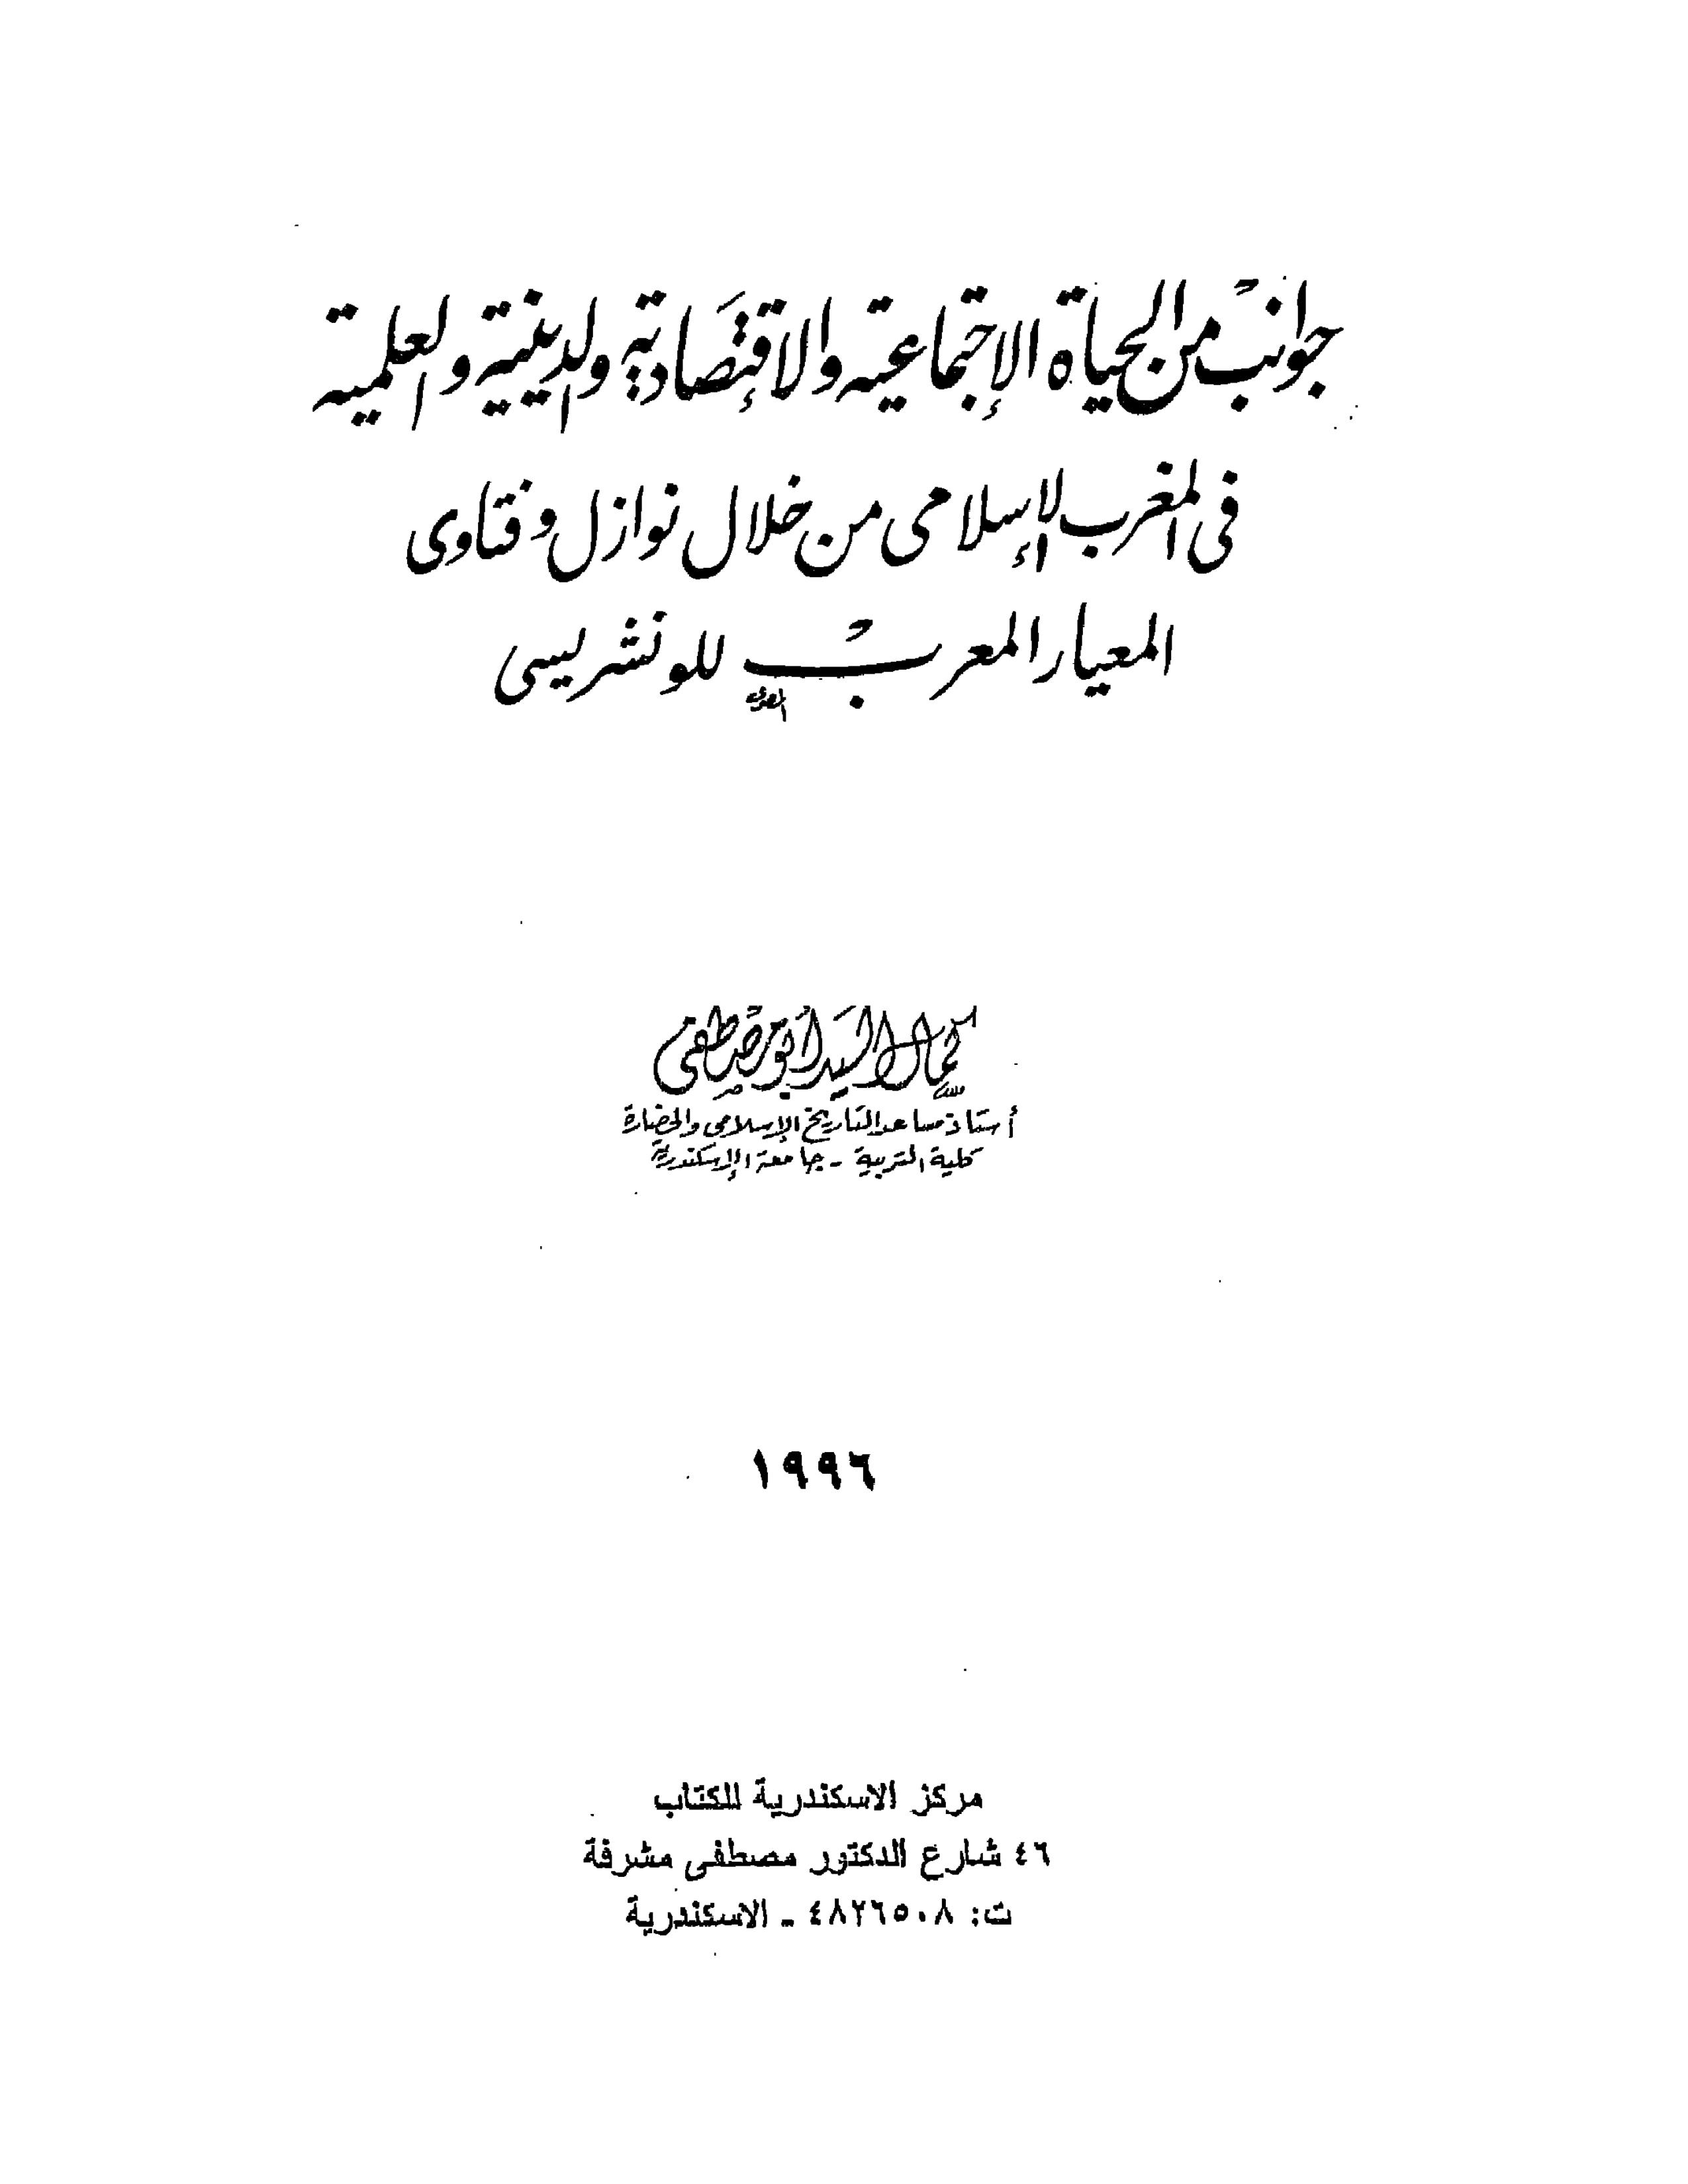 جوانب من الحياة الإجتماعية والإقتصادية والدينية والعلمية
فى المغرب الإسلامى من خلال نوازل وفتاوى
المعيار المعرب للونشريسى
كمال السيد أبو مصطفى
أستاذ مساعد التاريخ الإسلامى والحضارة
كلية التربية - جامعة الإسكندرية
١٩٩٦
مركز الاسكندرية للكتاب
٤٦ شارع الدكتور مصطفى مشرفة
ت: ٤٨٢٦٥٠٨ - الاسكندرية